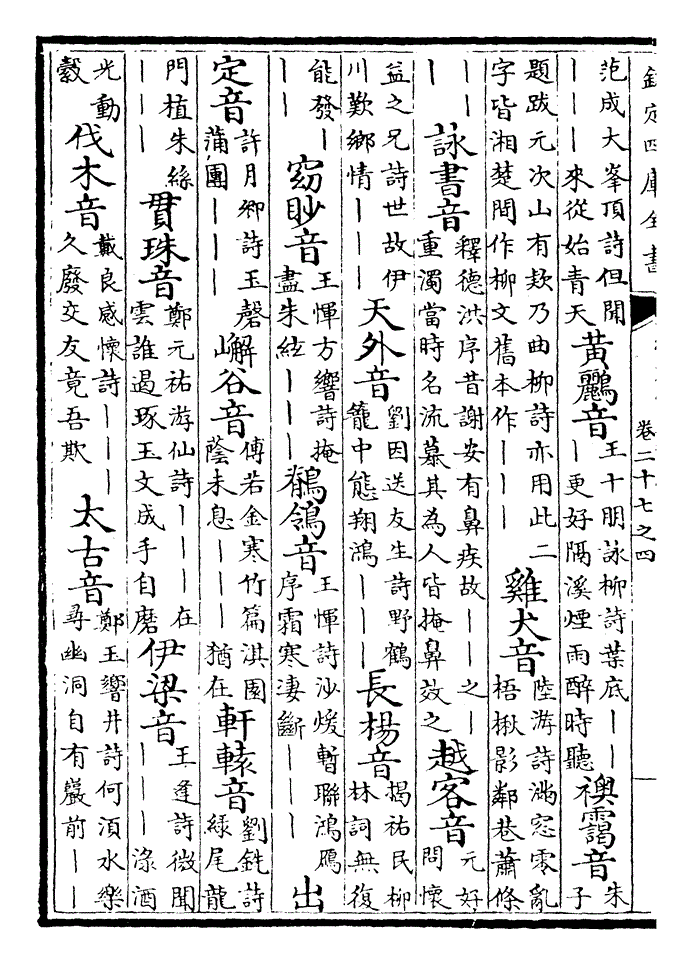 欽定四庫全書
卷二十七之四
范成大峯頂詩但聞｜｜｜來從始青天黃鸝音王十朋詠柳詩葉底｜｜｜更好隔溪煙雨醉時聽襖靄音朱子
題跋元次山有欸乃曲柳詩亦用此二字皆湘楚間作柳文舊本作｜｜｜雞犬音陸游詩滿窓零亂梧楸影鄰巷蕭條
｜｜｜詠書音釋德洪序昔謝安有鼻疾故｜｜之｜重濁當時名流慕其為人皆掩鼻效之越客音元好問懷
益之兄詩世故伊川歎鄉情｜｜｜天外音劉因送友生詩野鶴籠中態翔鴻｜｜｜長楊音揭祐民柳林詞無復
能發｜｜｜窈眇音王惲方響詩掩盡朱絃｜｜｜鶺鴒音王惲詩沙煖暫聯鴻鴈序霜寒淒斷｜｜｜出
定音許月卿詩玉磬蒲團｜｜｜嶰谷音傅若金寒竹篇淇園蔭未息｜｜｜猶在軒轅音劉銑詩緑尾龍
門植朱絲｜｜｜貫珠音鄭元祐游仙詩｜｜｜在雲誰遏琢玉文成手自磨伊梁音王逢詩微聞｜｜｜渌酒
光動縠伐木音戴良感懷詩｜｜｜久廢交友竟吾欺太古音鄭玉響井詩何湏水樂尋幽洞自有巖前｜｜